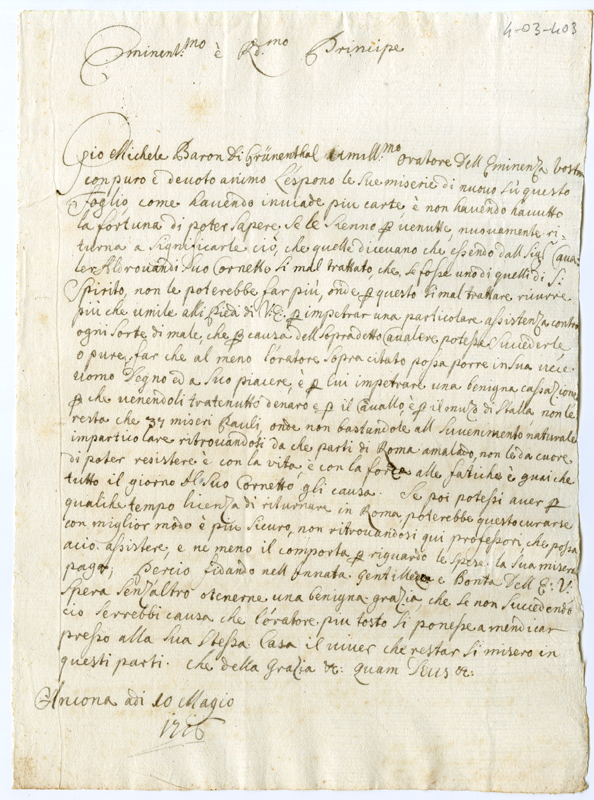 4-03-403
Eminent.mo è Rd.mo Principe
Gio Michele Baron Di Grünenthal umill.mo oratore Dell Eminenza Vostra
con puro è devoto animo L'espono le sue miserie di nuovo sù questo
foglio come havendo inviade piu carte è non havendo havutto
la fortuna di poter sapere se le sienno venutte, nuovamente ri-
turna a significarle ciò, che quelle dicevano che essendo dall Sig.
Aldrovandi suo Cornetto si mal trattato, che se fosse uno di quelli di S:
Spirito, non le poterebbe far più, onde p questo si mal trattare ricorre
più che umile alli Piedi di V:E: p impetrar una particolare assistenza contro
ogni sorte di male, che p causa dell sopradetto Cavaliere potesse succederle
o pure, far che al meno l'oratore sopra citato possa porre in sua vece
uomo Degno ed a suo piacere, è p lui impetrare una benigna cassazione
p che venendoli tratenutto denaro è p il Cavallo, è p il di Stalla non le
resta che 37 miseri Pauli, onde non bastandole all suvenimento naturale
in particolare ritrovandosi da che parti di Roma amalado, non le da cuore
di poter resistere è con la vita è con la forza alle fatiche è guai che
tutto il giorno il suo Cornetto gli causa. Se poi potessi aver p
qualche tempo licenza di riturnare in Roma poterebbe questo curarse
con miglior modo è più sicuro, non ritrovandosi qui professori che possa
acio assistere, e ne meno il comporta p riguardo le spese la sua misera
paga; Perciò fidando nell innata gentillezza e Bontà Dell E: V:
spera senz'altro otenerne una benigna grazia che se non succedendo
ciò serrebbi causa che l'oratore piu tosto si ponesse a mendicar
presso alla sua stessa Casa il viver che restar si misero in
questi parti. che della Grazia &: quam Deus &:
Ancona adi 10 Magio